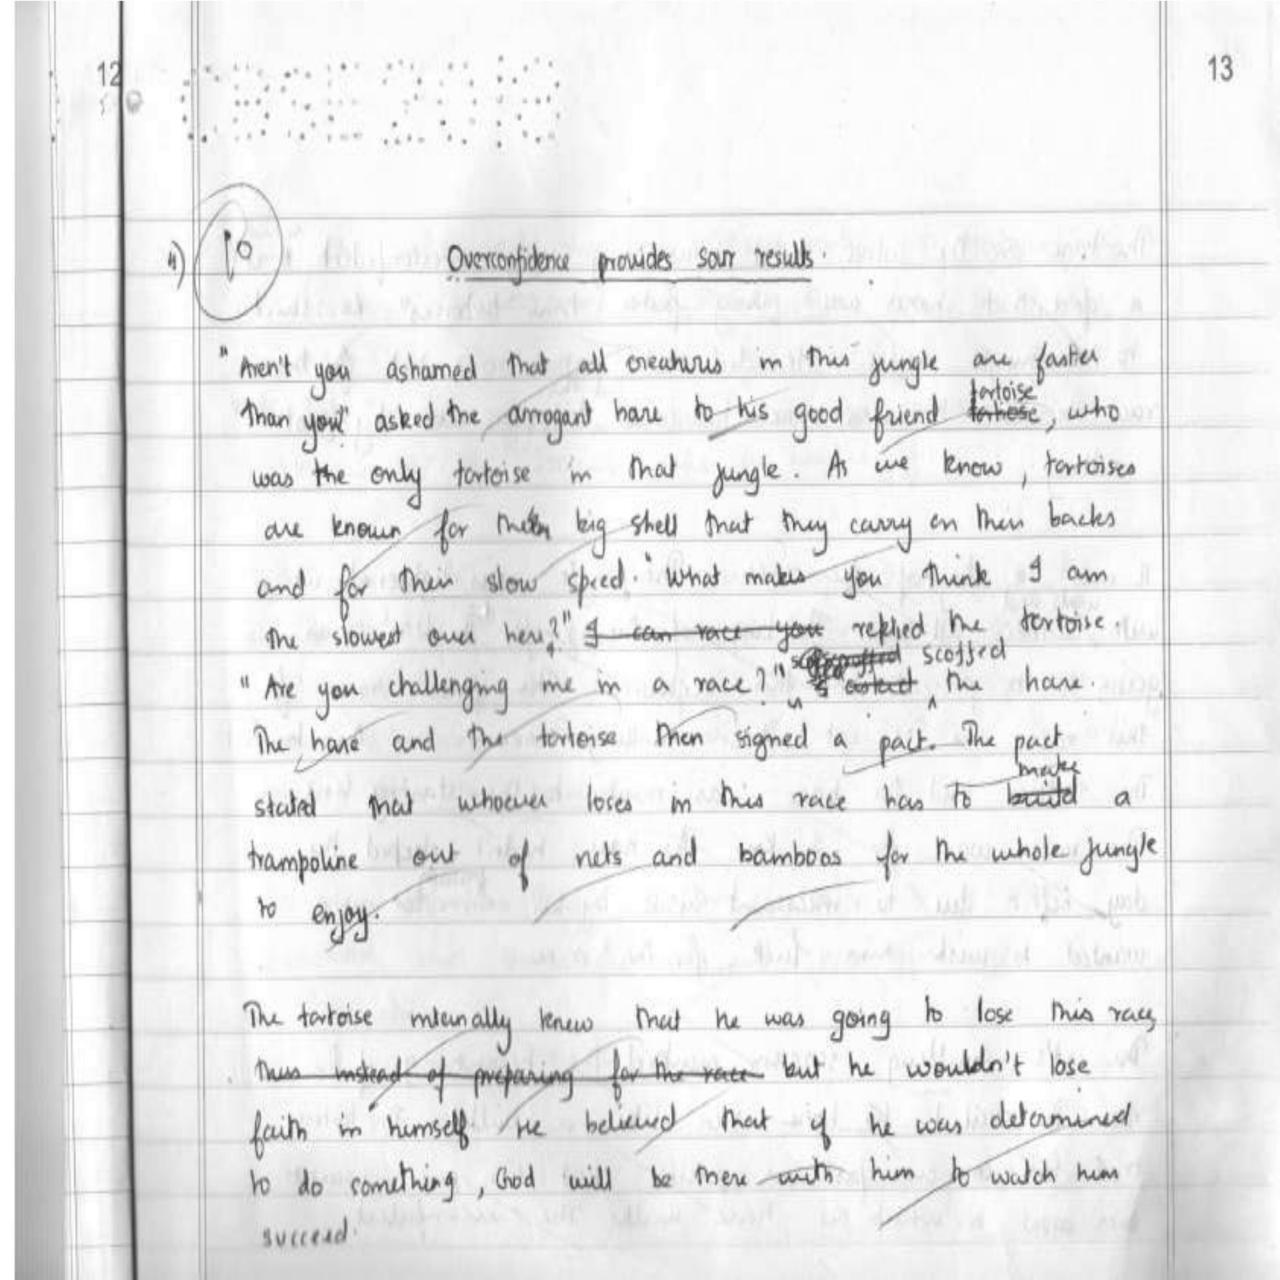 12
13
4) 10
Overconfidence provides sour results.
"Aren't you ashamed that all creatures in this jungle are faster
tortoise
than you" asked the arrogant hare to his good friend tortose, who
was the only tortoise in that jungle. As we know, tortoises
are known for their big shell that they carry on their backs
and for their slow speed. "What makes you think I am
the slowest over here?" I can race you replied the tortoise.
scoffed
"Are you challenging me in a race?" asked the hare.
The hare and the tortoise then signed a pact. The pact
make
stated that whoever loses in this race has to build a
trampoline out of nets and bamboos for the whole jungle
to enjoy.
The tortoise internally knew that he was going to lose this race,
Thus instead of preparing for the race but he wouldn't lose
faith in himself He believed that if he was determined
to do something, God will be there with him to watch him
succeed.